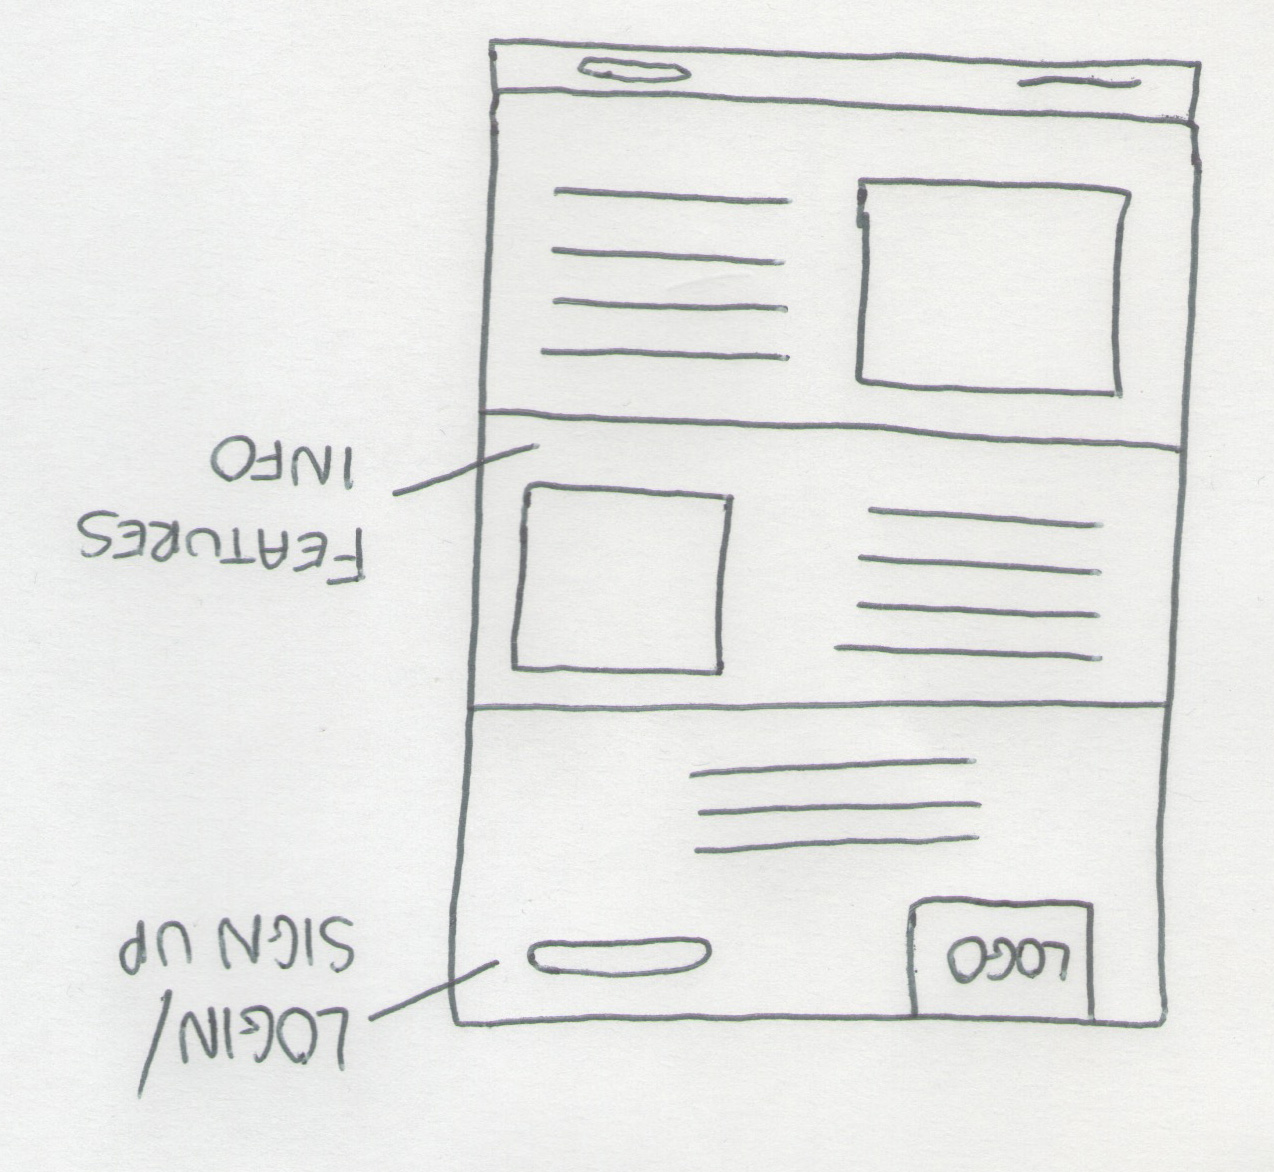 LOGO
LOGIN/
SIGN UP
FEATURES
INFO